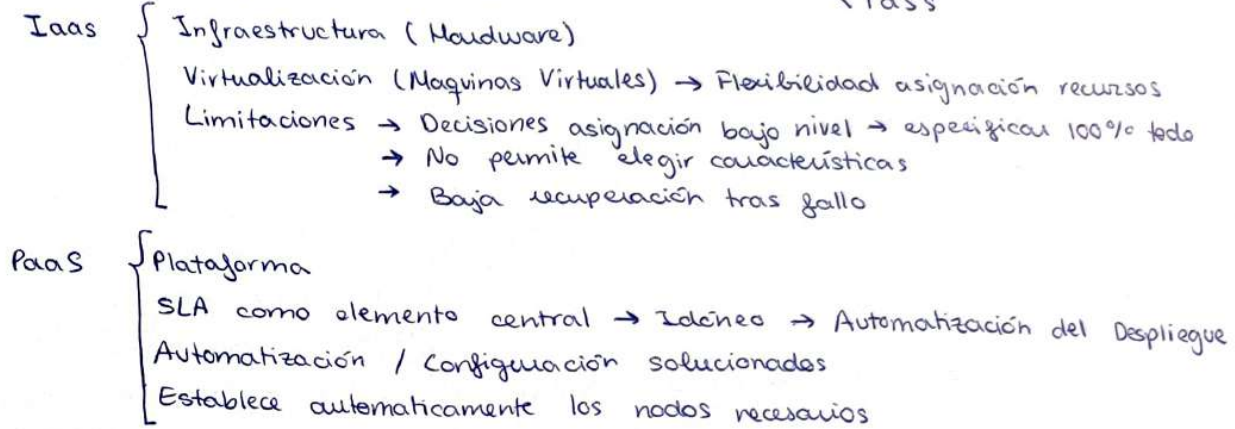 Iaas Infraestructura (Hardware)
Virtualización (Maquinas Virtuales) → Flexibilidad asignación recursos
Limitaciones → Decisiones asignación bajo nivel → especificar 100% todo
→ No permite elegir características
→ Baja recuperación tras fallo
PaaS Plataforma
SLA como elemento central → Idóneo → Automatización del Despliegue
Automatización / Configuración solucionados
Establece automaticamente los nodos necesarios